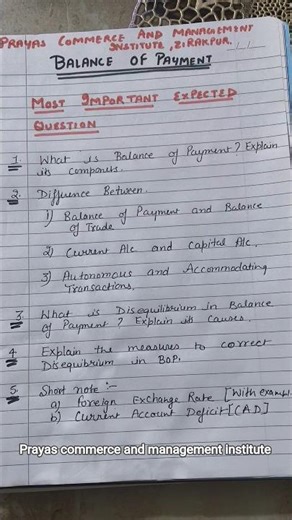 PRAYAS COMMERCE AND MANAGEMENT
INSTITUTE, ZIRAKPUR.
BALANCE OF PAYMENT
MOST IMPORTANT EXPECTED
QUESTION
1. What is Balance of Payment? Explain
its componets.
2. Difference Between.
1) Balance of Payment and Balance
of Trade
2) Current A/c and Capital A/c.
3) Autonomous and Accommodating
Transactions.
3. What is Disequilibrium in Balance
of Payment? Explain its causes.
4. Explain the measures to correct
Disequibrium in BOP.
5. Short note :-
a) Foreign Exchange Rate [With exampl.
b) Current Account Deficit [CAD]
Prayas commerce and management institute